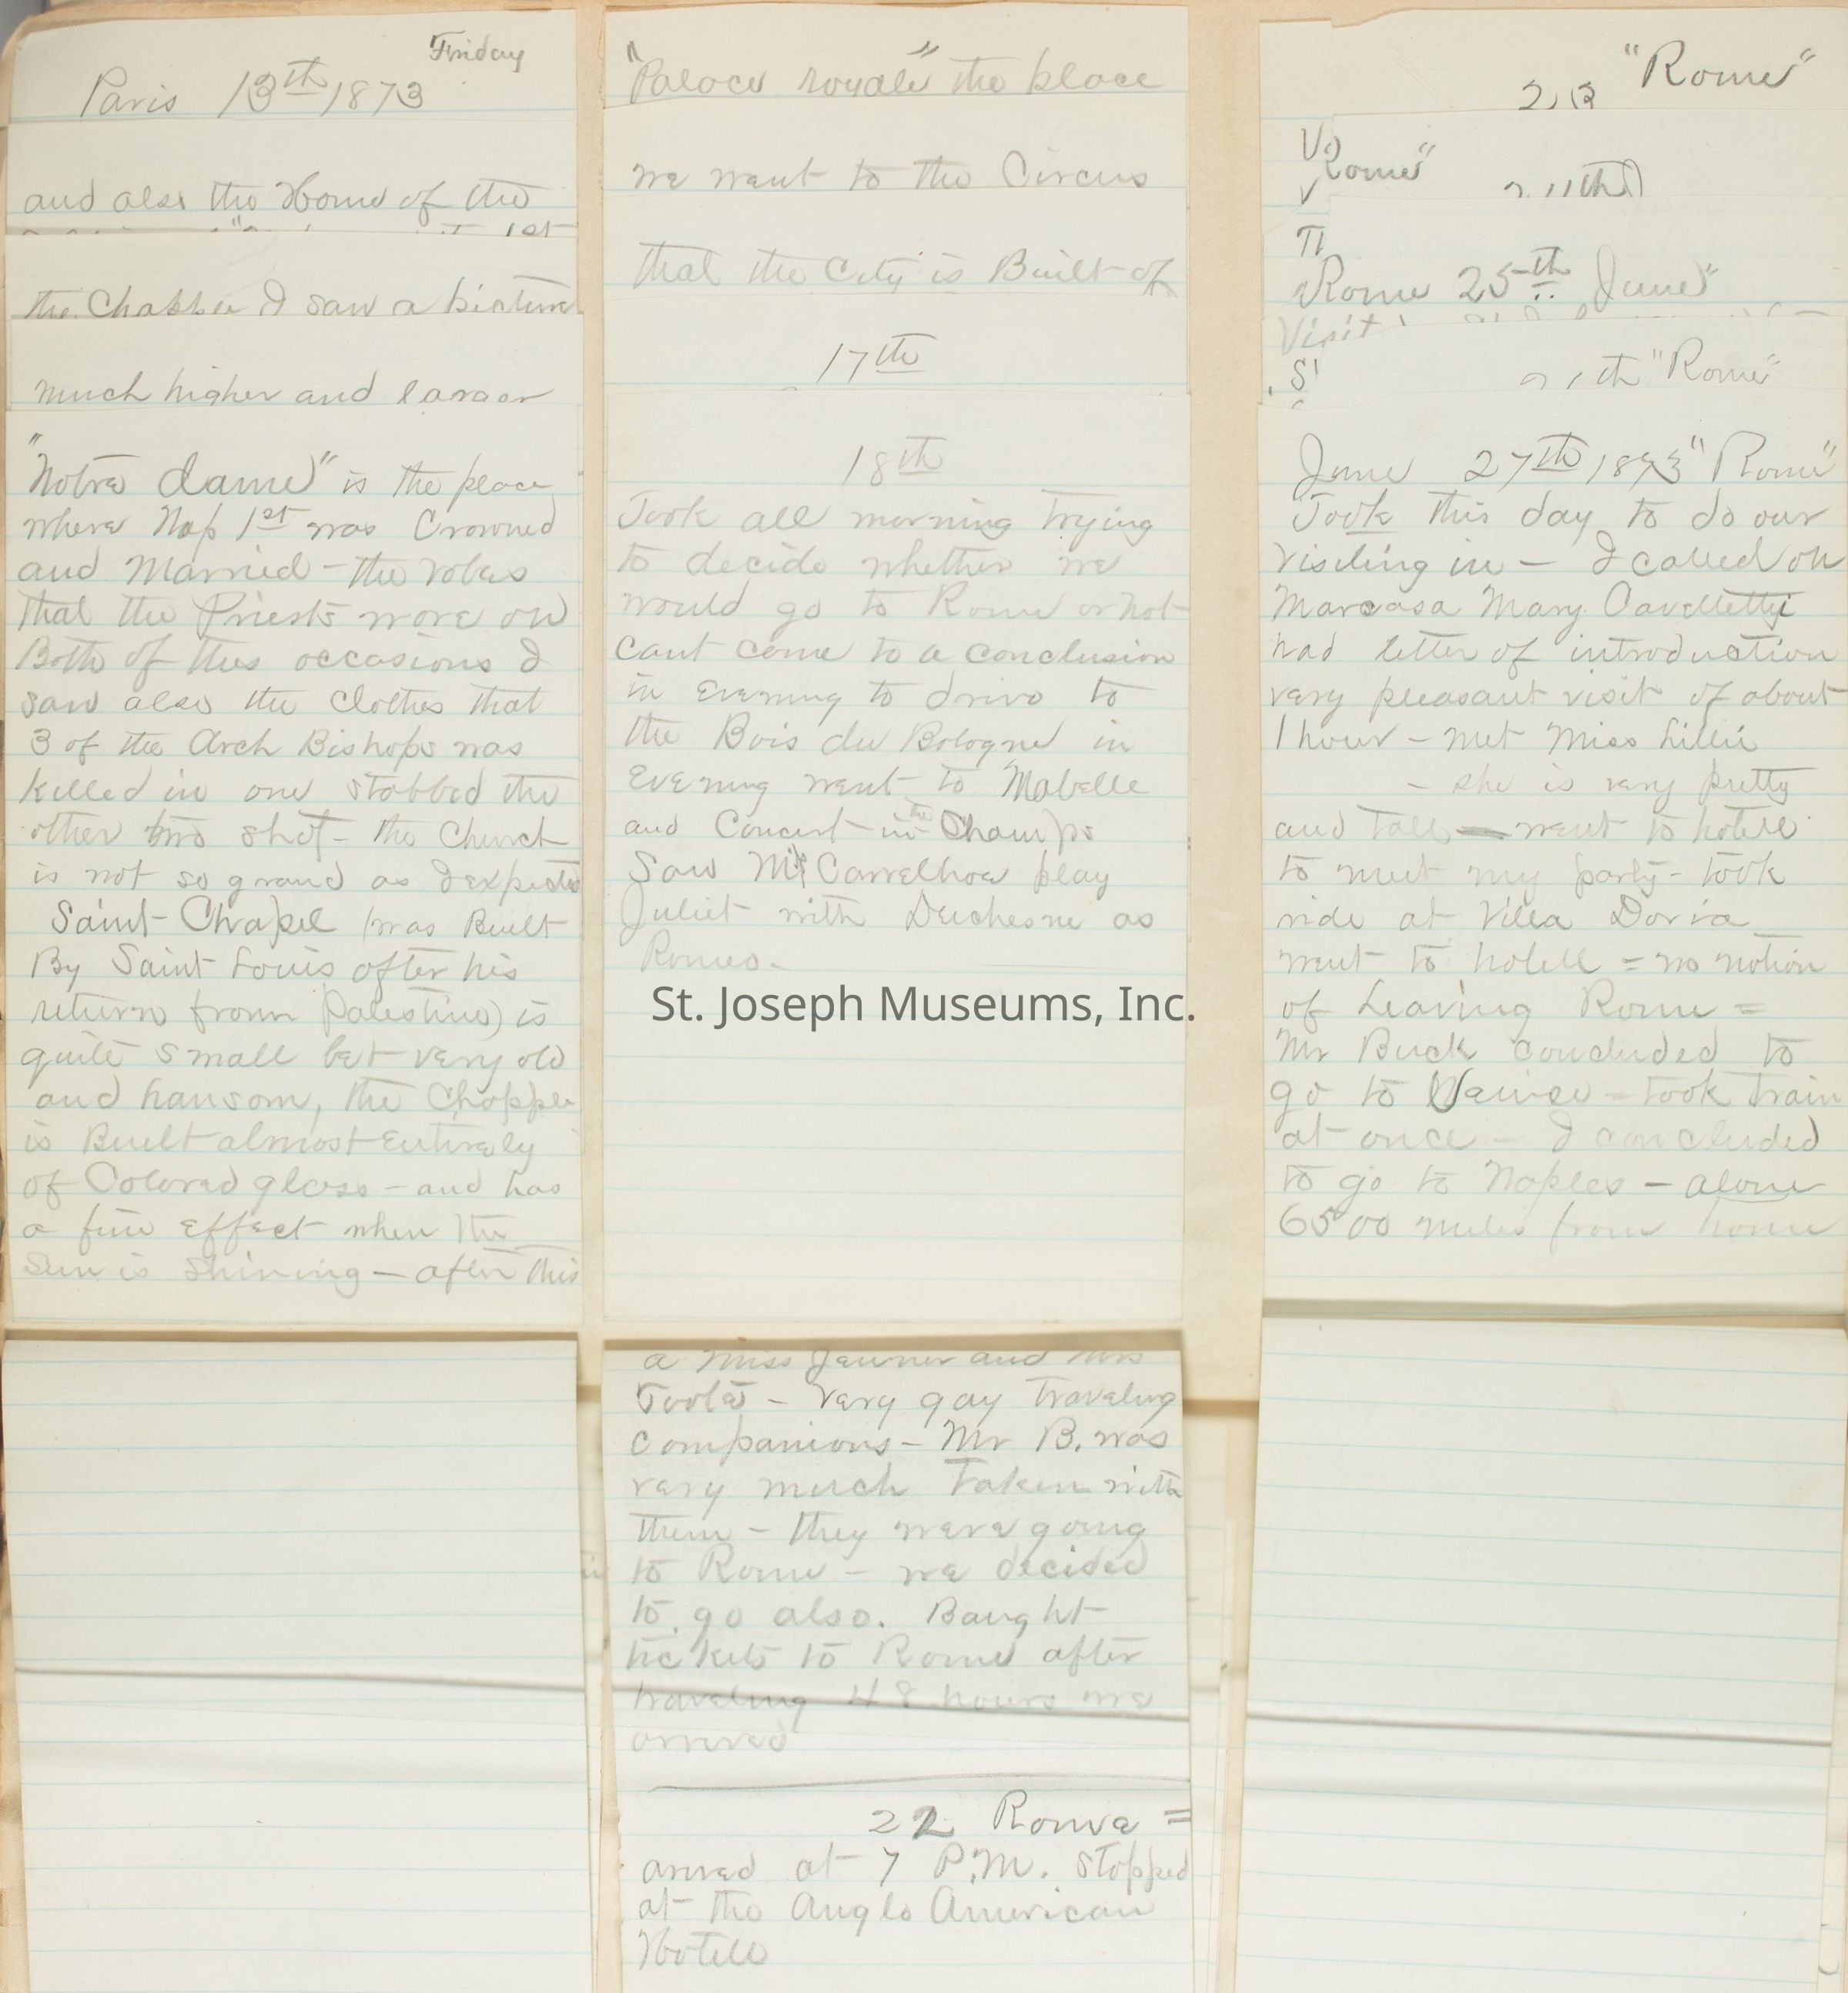 Friday
Paris 13th 1873
and also the Home of the
the Chappel I saw a picture
much higher and larger
"Notre dame" is the place
where Nap 1st was Crowned
and Married - the robes
that the Priests wore on
Both of thes occasions I
saw also the Clothes that
3 of the Arch Bishops was
killed in one stabbed the
other two shot - the Church
is not so grand as I expected
Saint Chapel (was Built
By Saint Louis after his
return from Palestine) is
quite small but very old
and hansom, the Chappel
is Built almost Entirely
of Colored glass - and has
a fine effect when the
Sun is shining - after this
"Palace royale" the place
we went to the Circus
that the City is Built of
17th
18th
Took all morning trying
to decide whether we
would go to Rome or not
cant come to a conclusion
in Evening to drive to
the Bois du Bologne in
Evening went to Mabelle
and Concert in the Champs
Saw Carrelhoe play
Juliet with Duchesne as
Romeo -
St. Joseph Museums, Inc.
a Miss Jenner and Mrs
Toole - Very gay traveling
companions - Mr B. was
very much taken with
them - they were going
to Rome - we decided
to go also. Baught
tickets to Rome after
traveling 48 hours we
arrived
22 Rome =
arived at 7 P.M. stopped
at the Anglo American
Hotell
"Rome"
Rome"
Rome 25th June"
Visit
"Rome"
June 27th 1873 "Rome"
Took this day to do our
visiting in - I called on
Marcasa Mary Cavelletty
had letter of introduction
very pleasant visit of about
1 hour - met Miss Lillie
- she is very pretty
and tall - went to hotell
to meet my party - took
ride at Villa Doria
went to hotell = no notion
of Leaving Rome =
Mr Buck concluded to
go to Venice - took train
at once - I concluded
to go to Naples - alone
6500 miles from home